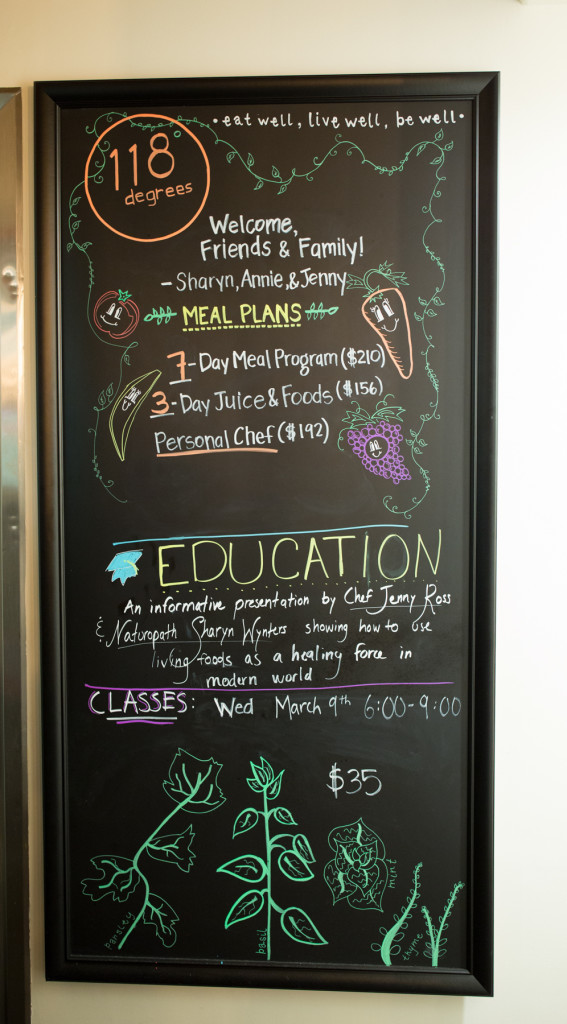 • eat well, live well, be well •
118°
degrees
Welcome,
Friends & Family!
- Sharyn, Annie, & Jenny
MEAL PLANS
7-Day Meal Program ($210)
3-Day Juice & Foods ($156)
Personal Chef ($192)
EDUCATION
An informative presentation by Chef Jenny Ross
& Naturopath Sharyn Wynters showing how to use
living foods as a healing force in
modern world
CLASSES: Wed March 9th 6:00-9:00
$35
parsley
basil
mint
thyme